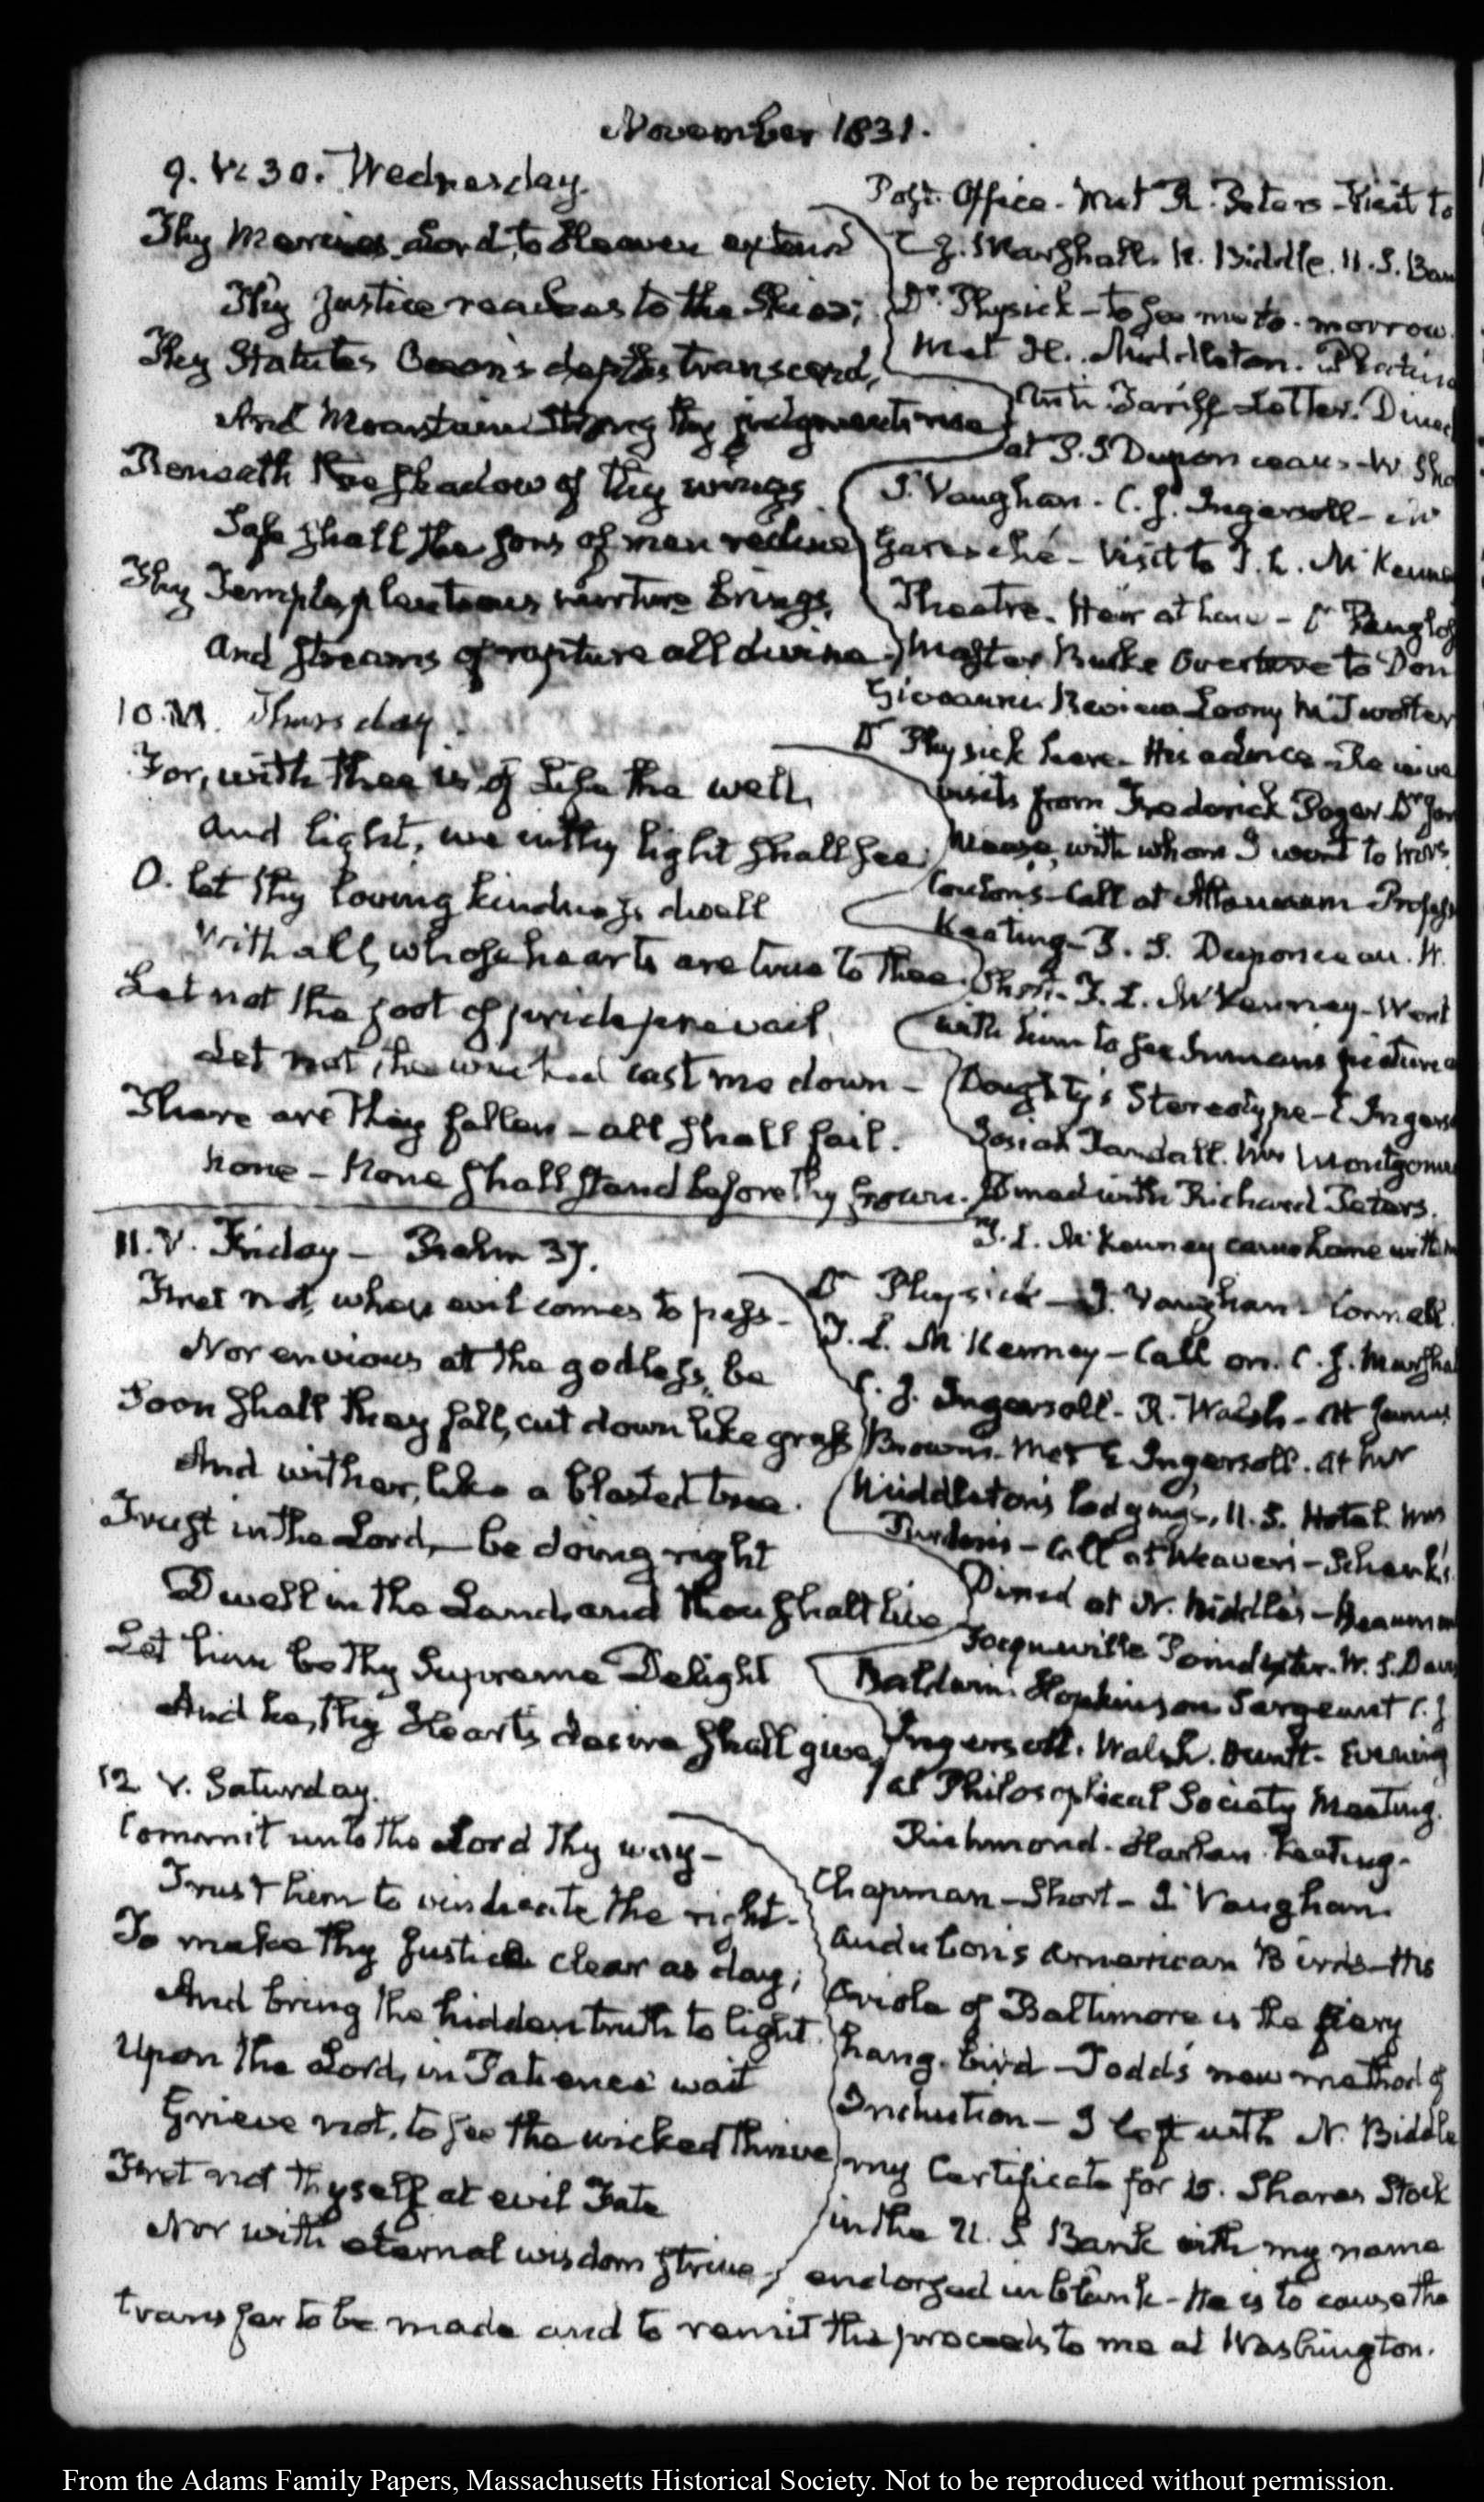 November 1831.
9. V:30. Wednesday.
Thy Mercies, Lord, to Heaven extend
Thy Justice reaches to the Skies;
Thy Statutes Ocean's depths transcend,
And Mountain Strong thy judgments rise
Beneath the shadow of thy wings
Safe shall the sons of men recline
Thy Temple, plenteous nurture brings,
And streams of rapture all divine.
Post Office. Met R. Peters - Visit to
C. J. Marshall. N. Biddle. U.S. Ban
Dr. Physick - to see me to-morrow.
Met H. Middleton.
Anti Tariff Letter. Dined
at P. S Duponceau's - W. Sho
J. Vaughan. C. J. Ingersoll -
Garesché - Visit to T. L. McKenne
Theatre. Heir at Law - Dr Panglos
Master Burke Overture to Don
Giovanni Review Loony McTwolter
10. Thursday
For, with thee is of Life the well,
And light, we in thy light shall see
O. let thy loving kindness dwell
With all, whose hearts are true to Thee.
Let not the foot of pride prevail,
Let not, the wicked cast me down -
There are They fallen - all shall fail.
None - None shall stand before thy frown.
Dr Physick here - His advice
visits from Frederick
Mease, with whom I went to
Call at Athenaeum Profess
Keating - P. S. Duponceau. W.
Short. T. L. McKenney - Went
with him to see Inman's picture
Doughty's Stereotype - E Ingers
Josiah Randall. Mrs Montgome
Dined with Richard Peters.
T. L. McKenney came home with
11. V. Friday - Psalm 37.
Fret not, when evil comes to pass -
Nor envious at the godless, be
Soon shall they fall, cut down like grass
And wither, like a blasted tree.
Trust in the Lord, - be doing right
Dwell in the Land, and thou shalt live
Let him be thy Supreme Delight
And he, thy Heart's desire shall give,
Dr Physick - J. Vaughan - Connell.
T. L. McKenney - Call on. C. J. Marsha
C. J. Ingersoll - R. Walsh - at James
Brown's. Met E Ingersoll. at Mr
Middleton's lodgings, U.S. Hotel. Mrs
Purdon's - Call at Weaver's - Schenk's
Dined at N. Biddle's - Beaumon
Tocqueville Poindexter. W. S. Davi
Baldwin. Hopkinson Sergeant C. J
Ingersoll. Walsh. Evening
at Philosophical Society Meeting.
12 V. Saturday.
Commit unto the Lord thy way -
Trust him to vindicate the right -
To make thy Justice clear as day;
And bring the hidden truth to light.
Upon the Lord, in Patience wait
Grieve not, to see the wicked thrive
Fret not thyself at evil Fate
Nor with eternal wisdom strive.
Richmond. Harlan. Keating.
Chapman - Short - J. Vaughan.
Audubon's American Birds - His
Oriole of Baltimore is the fiery
hang-bird - Todd's new method of
Induction - I left with N. Biddle
my Certificate for 15. Shares Stock
in the U. S Bank with my name
endorsed in blank - He is to cause the
transfer to be made and to remit the proceeds to me at Washington.
From the Adams Family Papers, Massachusetts Historical Society. Not to be reproduced without permission.